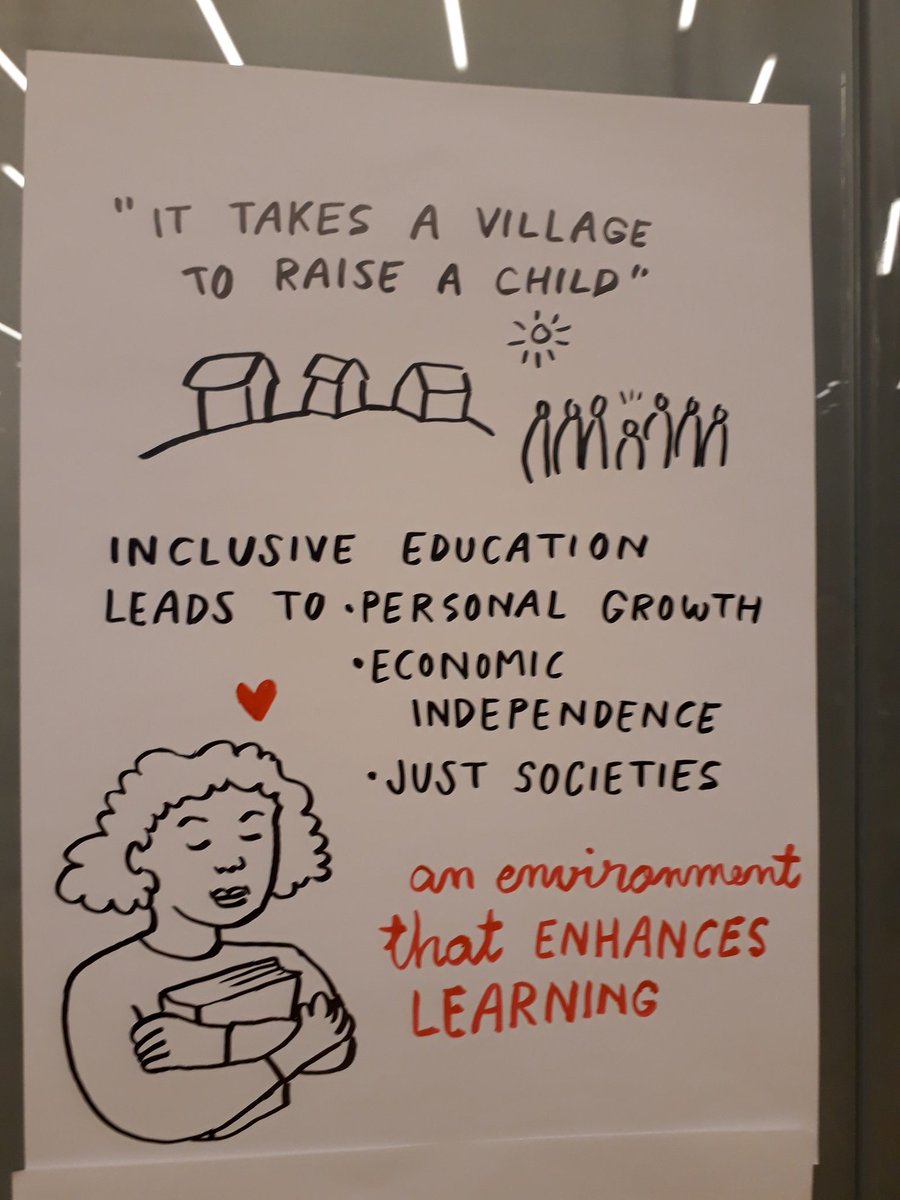 "IT TAKES A VILLAGE
TO RAISE A CHILD"
INCLUSIVE EDUCATION
LEADS TO •PERSONAL GROWTH
•ECONOMIC
INDEPENDENCE
•JUST SOCIETIES
an environment
that ENHANCES
LEARNING